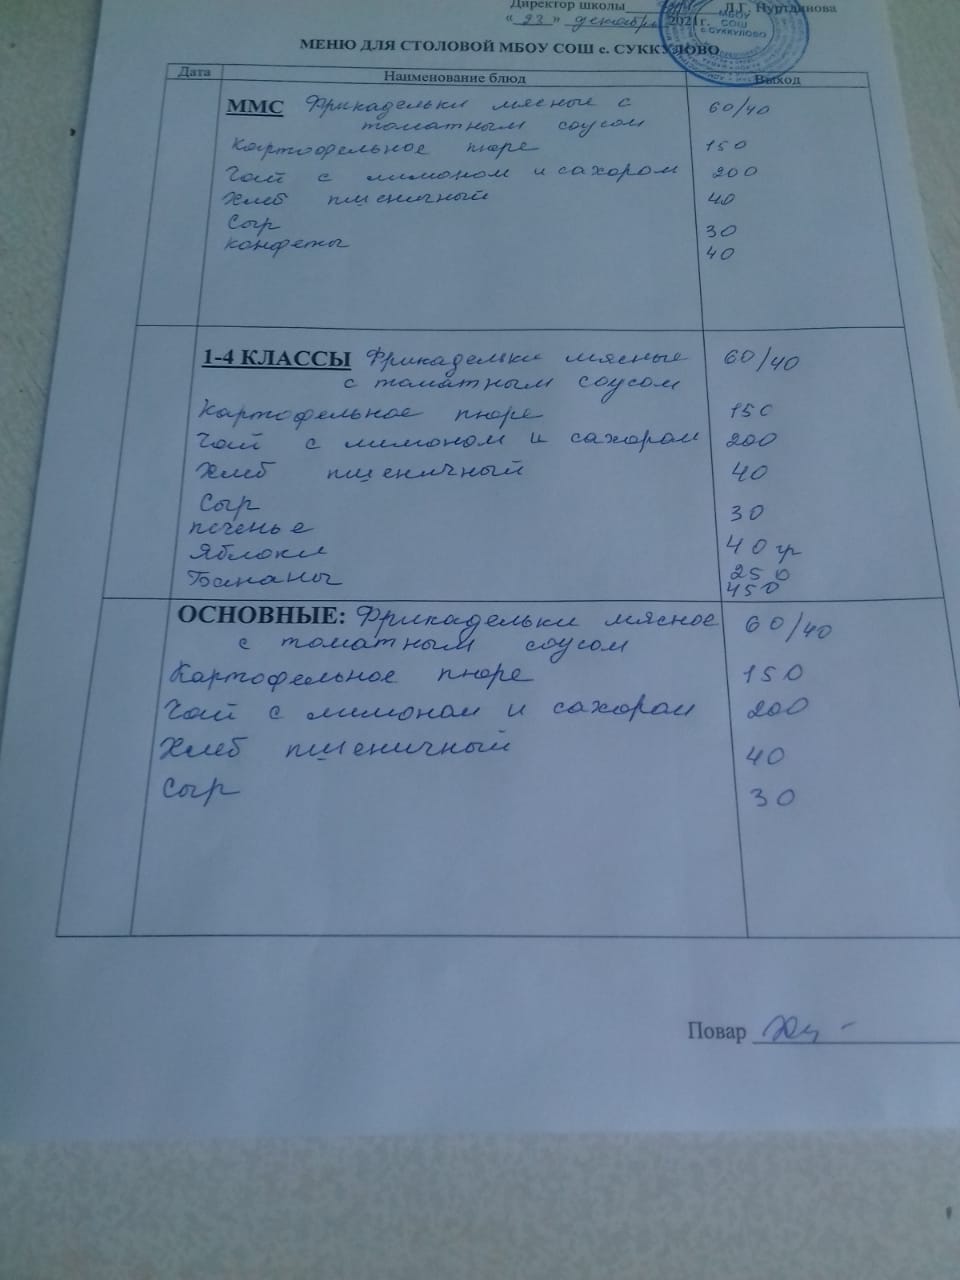 Директор школы Л.Г. Нуртдинова
« 23 » декабрь 2021г.
МБОУ
СОШ
с СУККУЛОВО
МЕНЮ ДЛЯ СТОЛОВОЙ МБОУ СОШ с. СУККУЛОВО
Дата Наименование блюд Выход
ММС Фрикадельки мясные с 60/40
томатным соусом
Картофельное пюре 150
Чай с лимоном и сахаром 200
Хлеб пшеничный 40
Сыр 30
конфеты 40
1-4 КЛАССЫ Фрикадельки мясные 60/40
с томатным соусом
Картофельное пюре 150
Чай с лимоном и сахаром 200
Хлеб пшеничный 40
Сыр 30
печенье 40 гр
Яблоки 250
Бананы 450
ОСНОВНЫЕ: Фрикадельки мясное 60/40
с томатным соусом
Картофельное пюре 150
Чай с лимоном и сахаром 200
Хлеб пшеничный 40
Сыр 30
Повар